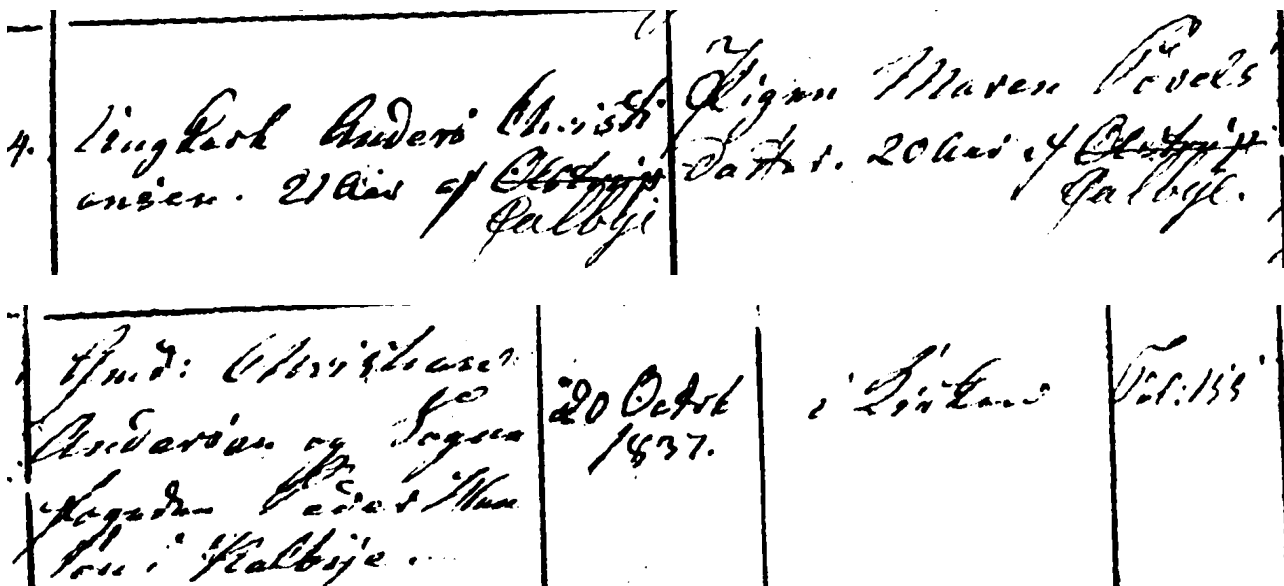 4. Ungkarl Anders Christi-
ansen. 21 Aar af Olstrup
Qalbye
Pigen Maren Povels
Datter. 20 Aar af Olstrup
Qalbye.
Gmd: Christian
Andersen og Sogne
fogeden Peder
i Kalbye.
20 Octbr
1837.
i Kirken
Fol: 155